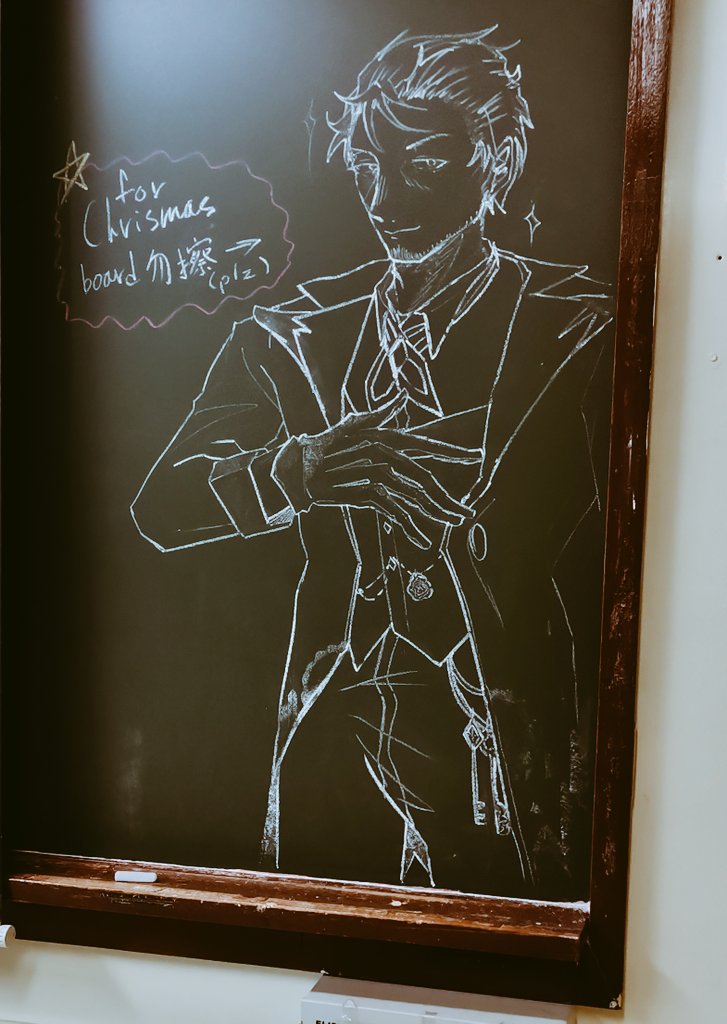 for
Chrismas
board 勿擦 →
(plz)